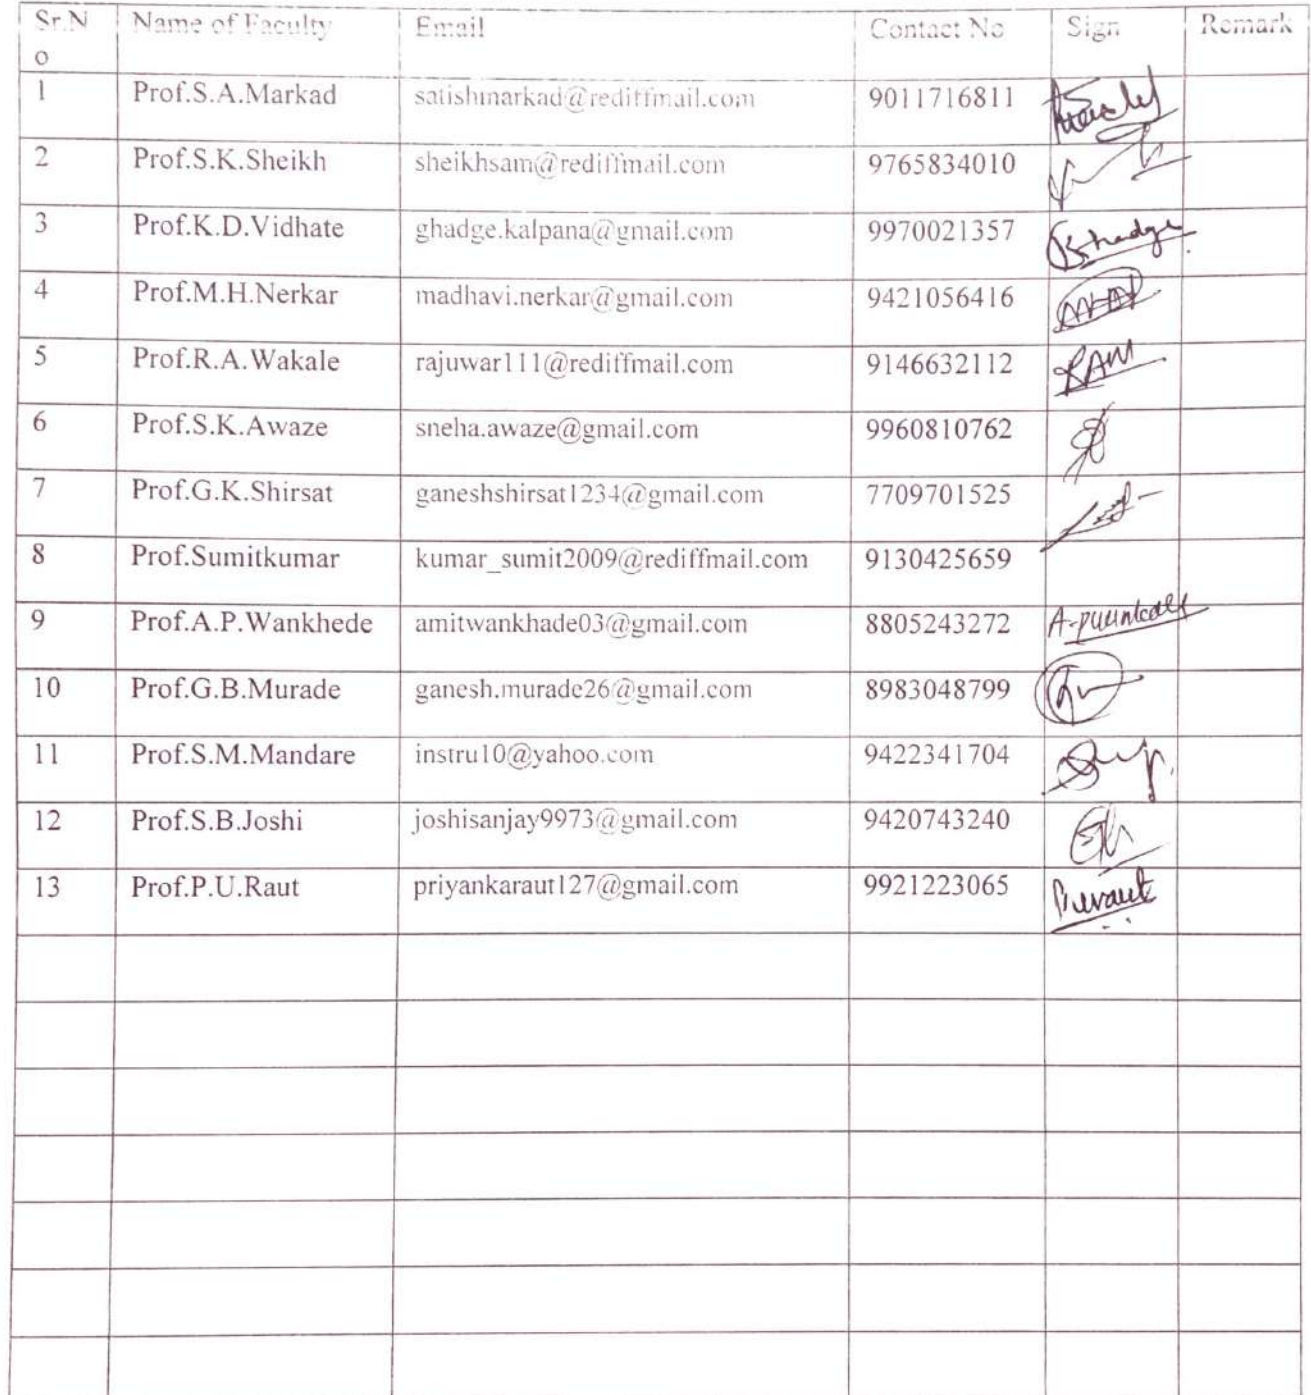 Sr.N Name of Faculty Email Contact No Sign Remark
o
1 Prof.S.A.Markad satishmarkad@rediffmail.com 9011716811
2 Prof.S.K.Sheikh sheikhsam@rediffmail.com 9765834010
3 Prof.K.D.Vidhate ghadge.kalpana@gmail.com 9970021357
4 Prof.M.H.Nerkar madhavi.nerkar@gmail.com 9421056416
5 Prof.R.A.Wakale rajuwar111@rediffmail.com 9146632112 RAW
6 Prof.S.K.Awaze sneha.awaze@gmail.com 9960810762
7 Prof.G.K.Shirsat ganeshshirsat1234@gmail.com 7709701525
8 Prof.Sumitkumar kumar_sumit2009@rediffmail.com 9130425659
9 Prof.A.P.Wankhede amitwankhade03@gmail.com 8805243272
10 Prof.G.B.Murade ganesh.murade26@gmail.com 8983048799
11 Prof.S.M.Mandare instru10@yahoo.com 9422341704
12 Prof.S.B.Joshi joshisanjay9973@gmail.com 9420743240
13 Prof.P.U.Raut priyankaraut127@gmail.com 9921223065